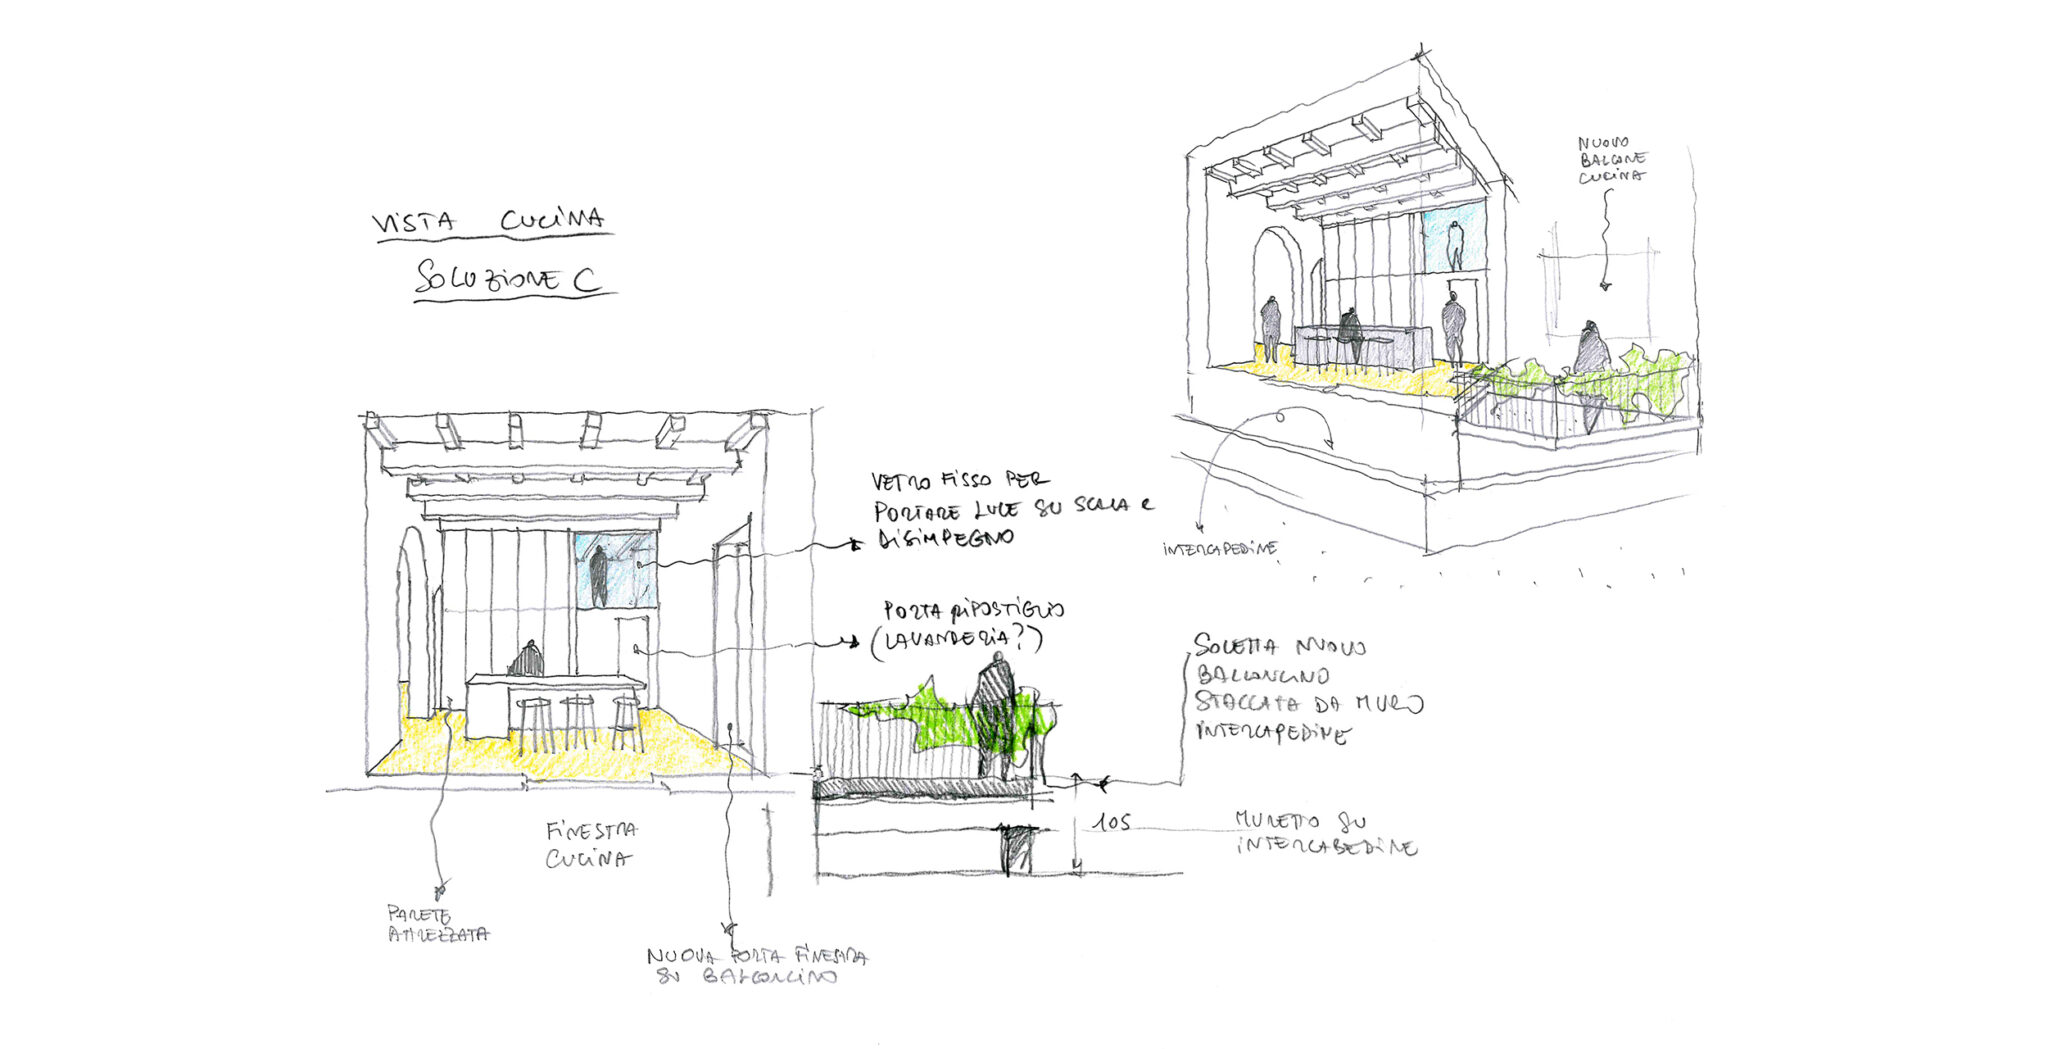 VISTA CUCINA
SOLUZIONE C
NUOVO
BALCONE
CUCINA
VETRO FISSO PER
PORTARE LUCE SU SCALA E
DISIMPEGNO
PORTA RIPOSTIGLIO
(LAVANDERIA?)
INTERCAPEDINE
SOLETTA NUOVO
BALCONCINO
STACCATA DA MURO
INTERCAPEDINE
105
MURETTO SU
INTERCAPEDINE
FINESTRA
CUCINA
PARETE
ATTREZZATA
NUOVA PORTA FINESTRA
SU BALCONCINO